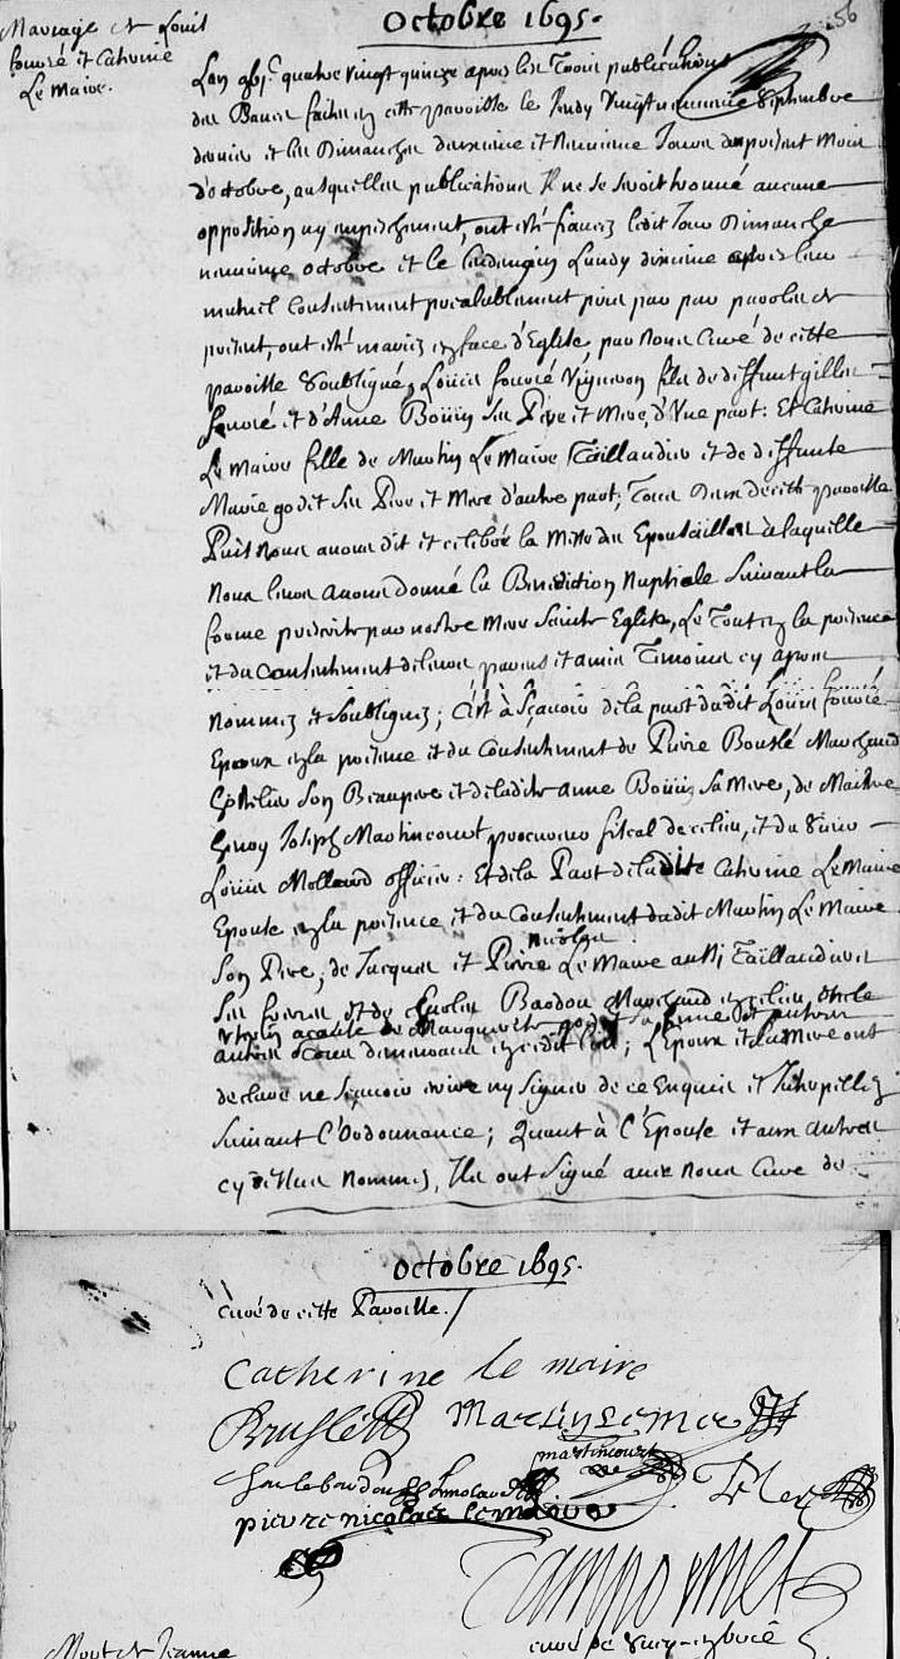 Octobre 1695.
56
Mariage de Louis
fouré et Catherine
Le Maire.
L'an quatre vingt quinze apres les Trois publications
des Bans faites en cette paroisse le Jeudy Vingt neuvieme Septembre
dernier et les Dimanches deuxieme et Neuvieme Jours du present Mois
d'octobre, ausquelles publications Il ne se seroit trouvé aucune
opposition ny empeschement, ont esté fiancez ledit Jour Dimanche
neuvieme octobre et le lendemain Lundy dixieme apres leur
mutuel Consentement prealablement pris par par paroles de
present, ont esté mariez en face d'Eglise, par Nous Curé de cette
paroisse Soubsigné, Loüis fouré Vigneron fils de deffunt gilles
fouré et d'Anne Boüin ses Pere et Mere, d'Vne part: Et Catherine
Le Maire fille de Martin Le Maire Taillandier et de deffunte
Marie godet ses Pere et Mere d'autre part; Tous Deux de cette paroisse
Puis Nous avons dit et celebré la Messe des Epousailles à laquelle
Nous leurs avons donné la Benediction Nuptiale Suivant la
forme prescrite par nostre Mere Sainte Eglise, Le Tout en la presence
et du Consentement de leurs parens et amis Temoins cy apres
nommez et Soubsignez; C'est à Sçavoir de la part dudit Loüis fouré
Epoux en la presence et du Consentement de Pierre Bruslé Marchand
Son Beaupere et de ladite anne Boüin Sa Mere, de Maistre
Joseph Martincourt procureur fiscal de ce lieu, et du Sieur
Loüis Mollard officier: Et de la Part de ladite Catherine Le Maire
Epouse en la presence et du Consentement dudit Martin Le Maire
nicolas
Son Pere, de Jacques et Pierre Le Maire aussi Taillandiers
Ses freres et de Baodou Marchand en ce lieu oncle
a cause de Marguerite godet Sa femme et autres
autres Tous demeurans en cedit lieu; L'Epoux et Sa Mere ont
declare ne Sçavoir ecrire ny Signer de ce Enquis et Interpellez
Suivant l'Ordonnance; Quant à l'Epouse et aux autres
cy dessus nommez, Ils ont Signé avec nous Curé de
Octobre 1695.
Curé de cette Paroisse./
Catherine le maire
Bruslé Martin Lemere
martincourt
pierre nicolas lemaire
Tamponnet
curé de Sucy-en brie
Mort de Jeanne